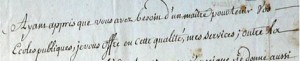 Ayant appris que vous avez besoin d'un maître pour tenir vos
Ecoles publiques, je vous offre en cette qualité, mes services; outre la